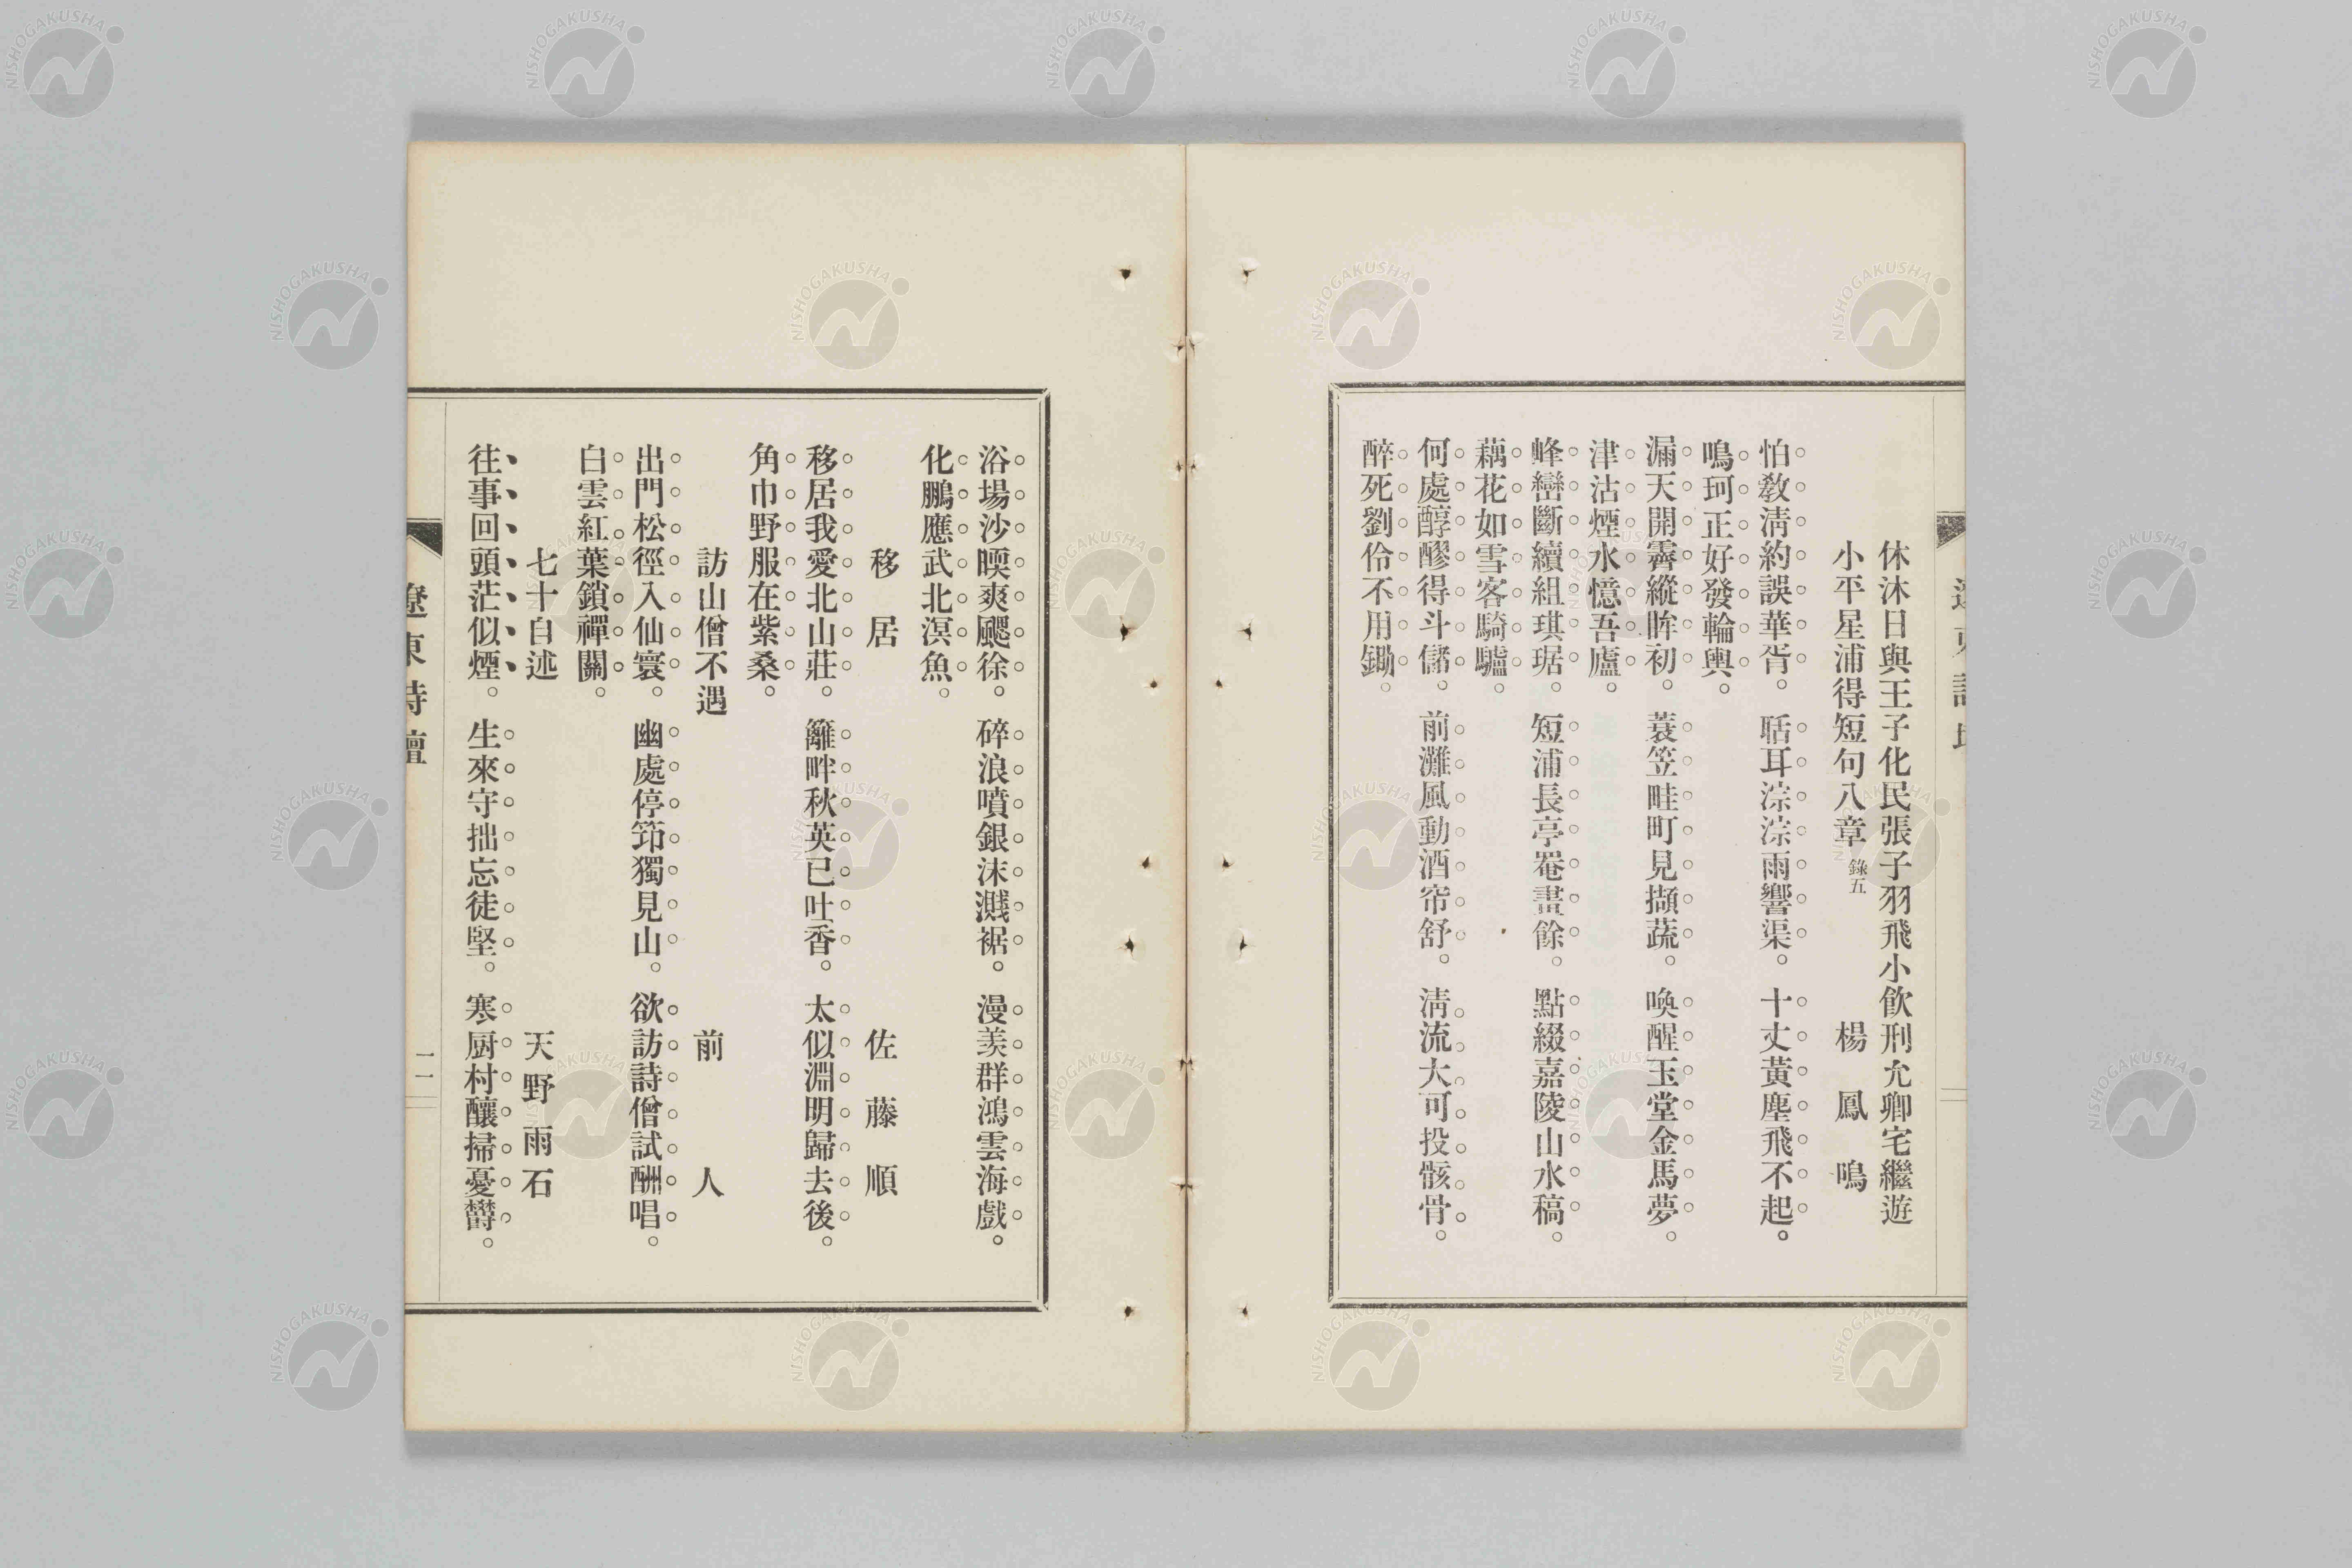 休沐日與王子化民張子羽飛小飲刑允卿宅繼遊
小平星浦得短句八章 錄五 楊鳳鳴
怕敎淸約誤華胥。聒耳淙淙雨響渠。十丈黃塵飛不起。
鳴珂正好發輪輿。
漏天開霽縱眸初。蓑笠畦町見擷蔬。喚醒玉堂金馬夢。
津沽煙水憶吾廬。
蜂巒斷續組琪琚。短浦長亭罨畫餘。點綴嘉陵山水稿。
藕花如雪客騎驢。
何處醇醪得斗儲。前灘風動酒帘舒。淸流大可投骸骨。
醉死劉伶不用鋤。
浴場沙暎爽颸徐。碎浪噴銀沫濺裾。漫羨群鴻雲海戲。
化鵬應武北溟魚。
移居 佐藤順
移居我愛北山莊。籬畔秋英已吐香。太似淵明歸去後。
角巾野服在紫桑。
訪山僧不遇 前人
出門松徑入仙寰。幽處停笻獨見山。欲訪詩僧試酬唱。
白雲紅葉鎖禪關。
七十自述 天野雨石
往事回頭茫似煙。生來守拙忘徒堅。寒厨村釀掃憂欝。
遼東詩壇
一一
NISHOGAKUSHA